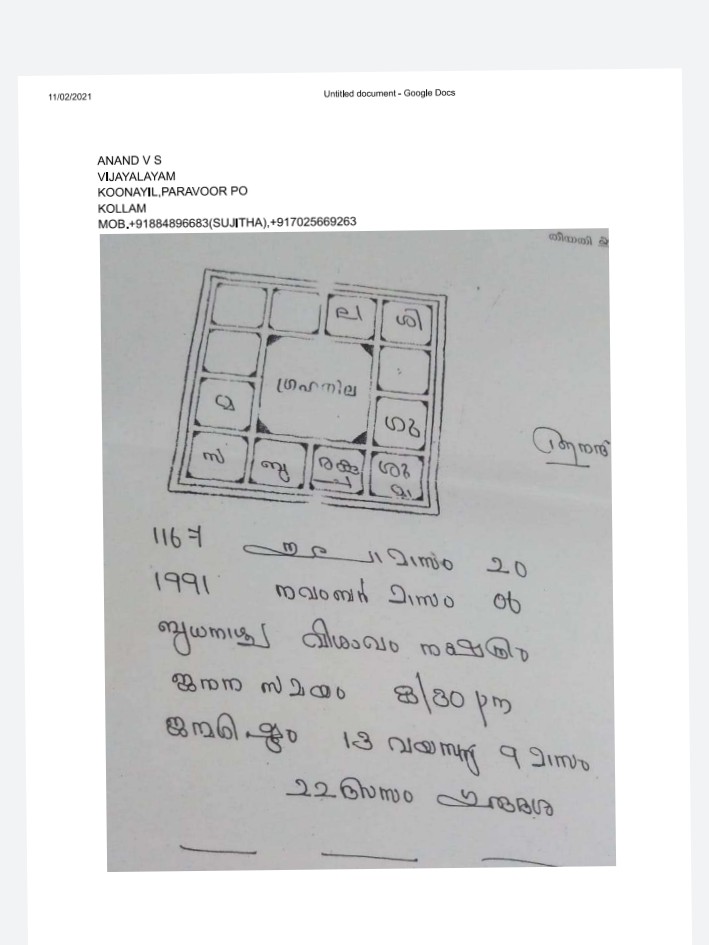 11/02/2021 Untitled document - Google Docs
ANAND V S
VIJAYALAYAM
KOONAYIL,PARAVOOR PO
KOLLAM
MOB.+91884896683(SUJITHA),+917025669263
ല ശി
ഗ്രഹനില
മ ഗു
സ ബു ശു
മാ
ആനന്ദ്
1167 മാസം 20
1991 നവംബർ മാസം 06
ബുധനാഴ്ച വിശാഖം നക്ഷത്രം
ജനന സമയം 8/30 pm
ജന്മശിഷ്ടം 13 വയസ്സ് 9 മാസം
22 ദിവസം